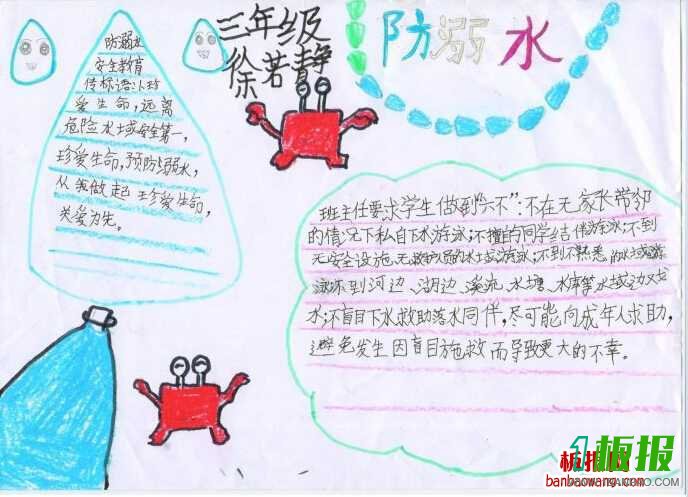 三年级
徐若静
防溺水
防溺水
安全教育
传标语：1、珍
爱生命，远离
危险水域安全第一，
珍爱生命，预防溺水，
从我做起 珍爱生命，
关爱为先。
班主任要求学生做到“六不”：不在无家长带邻
的情况下私自下水游泳；不擅自同学结伴游泳；不到
无安全设施、无救护员的水域游泳；不到不熟悉的水域游
泳不到河边、湖边、溪流、水塘、水库等水域边
水；不盲目下水救助落水同伴，尽可能向成年人求助，
避免发生因盲目施救而导致更大的不幸。
板报网
banbaowang.com
板报